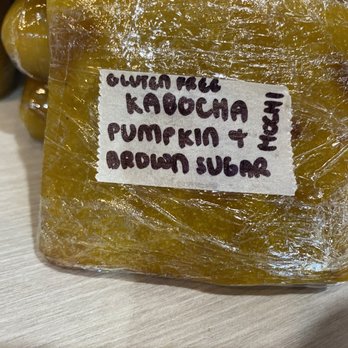 GLUTEN FREE
KABOCHA
PUMPKIN +
BROWN SUGAR
MOCHI